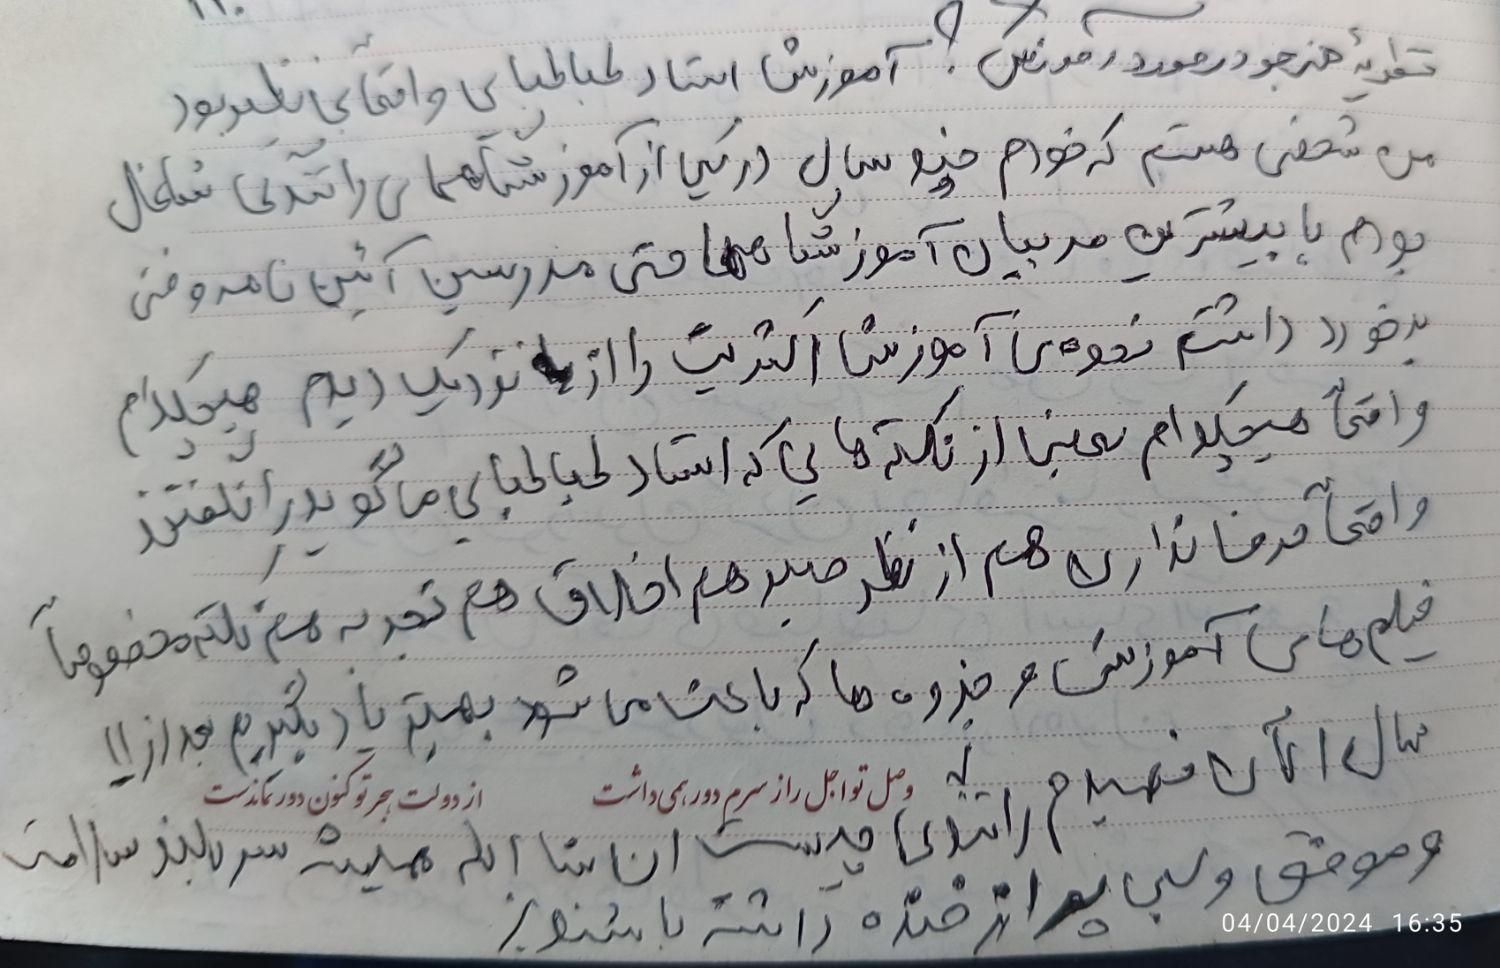 نظریهٔ هنرجو در مورد آموزش؟ آموزش استاد طباطبایی واقعاً بی‌نظیر بود
من شخصی هستم که خودم چند سال در یکی از آموزشگاههای رانندگی شاغل
بودم با بیشترین مربیان آموزشگاهها حتی مدرسین آئین نامه و فنی
برخورد داشتم نحوه‌ی آموزش اکثریت را از نزدیک دیدم هیچکدام
واقعاً هیچکدام بعضی از نکته هایی که استاد طباطبایی ما گوید را نگفتند
واقعاً حرفی نداری هم از نظر صبر هم اخلاق هم تجربه هم نکته مخصوصاً
فیلم های آموزشی و جزوه ها که باعث می شود بهتر یاد بگیریم بعد از ۱۱
سال الآن فهمیدم که
وصل تو اجل را ز سرم دور همی‌داشت از دولت هجر تو کنون دور نماندست
رانندگی چیست ان شا الله همیشه سربلند سلامت
و موفق و لبی پر از خنده داشته باشند
04/04/2024 16:35